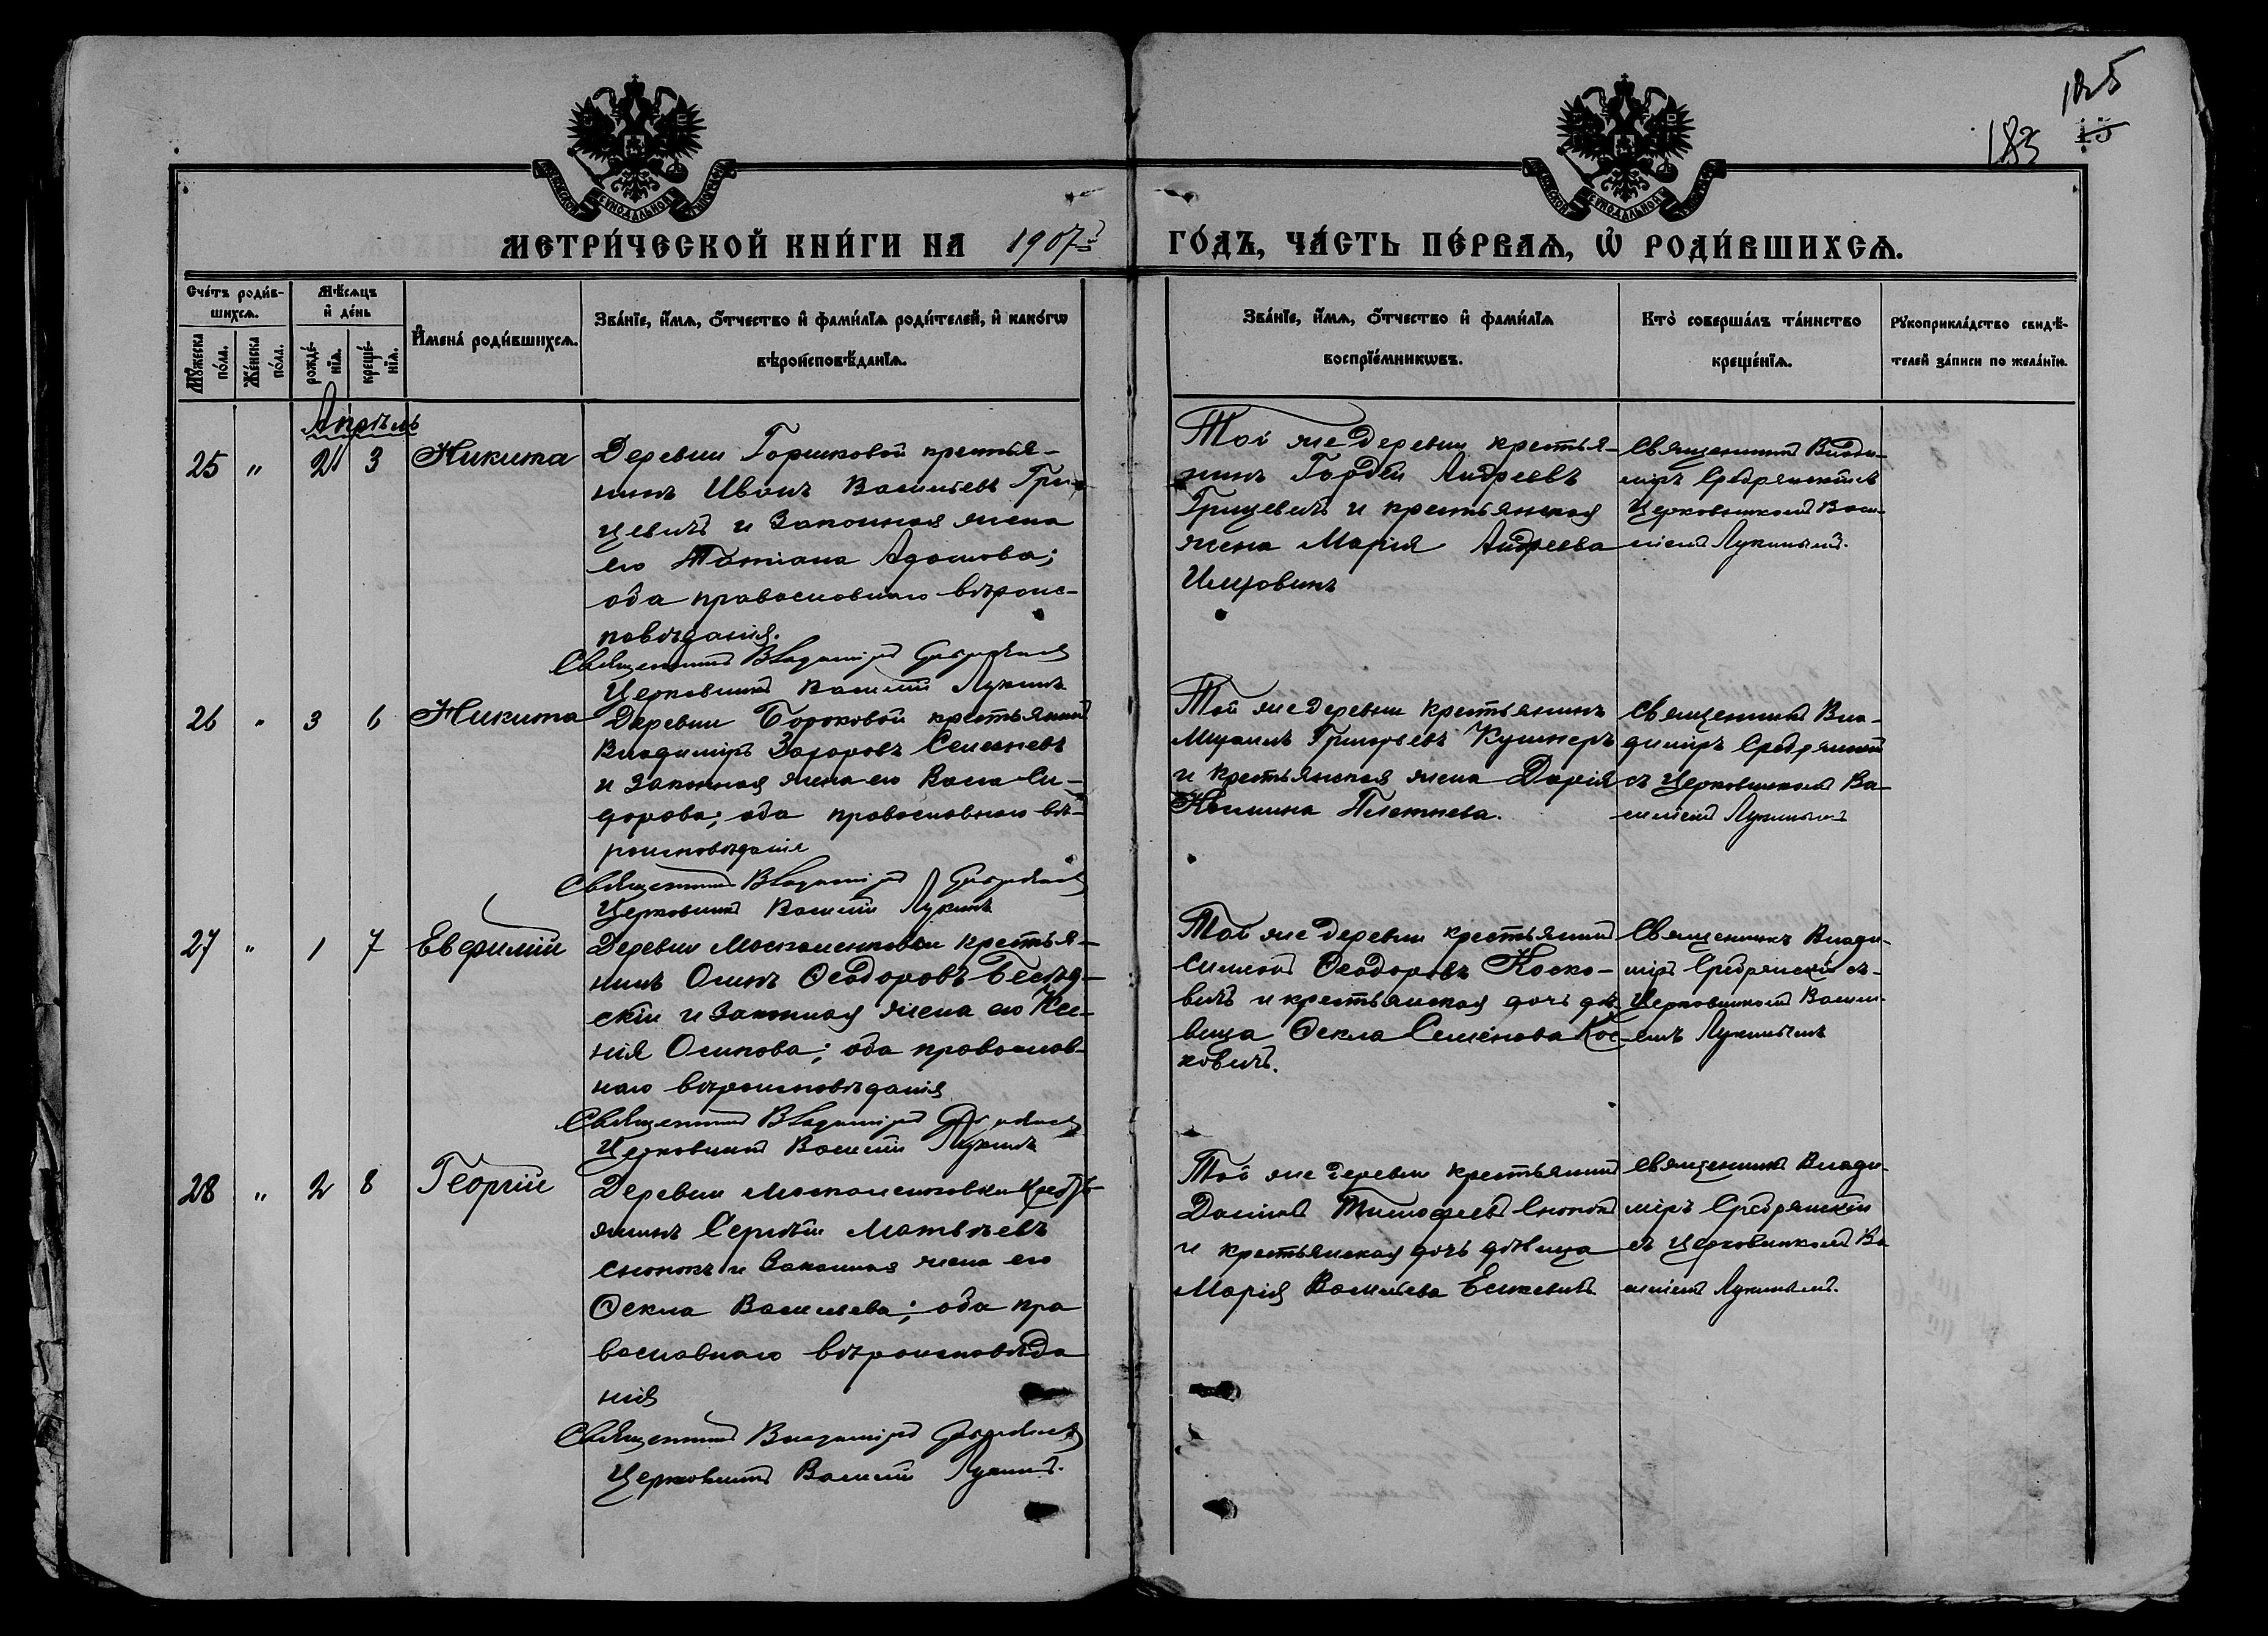 185
183
15
МЕТРИ́ЧЕСКОЙ КНИ́ГИ НА 1907й ГО́ДЪ, ЧА́СТЬ ПЕ́РВАѦ, Ѽ РОДИ́ВШИХСѦ.
Сче́тъ роди́в-
шихсѧ.
Мѣ́сѧцъ
и҆ де́нь
Мꙋ́жеска по́ла.
Же́нска по́ла.
рожде́-
нїѧ.
креще́-
нїѧ.
И҆мена̀ роди́вшихсѧ.
Зва́нїе, и҆́мѧ, ѻ҆́тчество и҆ фами́лїѧ роди́телей, и҆ како́гѡ
вѣроисповѣ́данїѧ.
Зва́нїе, и҆́мѧ, ѻ҆́тчество и҆ фами́лїѧ
воспрїе́мникѡвъ.
Кто̀ соверша́лъ та́инство
креще́нїѧ.
Рꙋкоприкла́дство свидѣ́-
телей за́писи по жела́нїю.
Апрѣль
25 " 2 3 Никита
Деревни Горшковой крестья-
нинъ Иванъ Васильевъ Гри-
цевичъ и законная жена
его Татiана Адамова;
оба православнаго вѣроис-
повѣданiя.
Священникъ Владимiръ
Церковникъ Василiй Лукинъ
Той же деревни крестья-
нинъ Гордей Андреевъ
Грицевичъ и крестьянская
жена Марiя Андреева
Священникъ Влади-
мiръ Сребрянскiй съ
Церковникомъ Васи-
лiемъ Лукинымъ.
26 " 3 6 Никита
Деревни Бороковой крестьянинъ
Владимiръ Захаровъ Селезневъ
и законная жена его Васса Си-
дорова; оба православнаго вѣ-
роисповѣданiя
Священникъ Владимiръ
Церковникъ Василiй Лукинъ
Той же деревни крестьянинъ
Михаилъ Григорьевъ Кушнеръ
и крестьянская жена Дарiя
Плетнева.
Священникъ Вла-
димiръ Сребрянскiй
съ Церковникомъ Ва-
силiемъ Лукинымъ
27 " 1 7 Евфимiй
Деревни Москаленковки крестья-
нинъ Осипъ Ѳеодоровъ Бесѣд-
скiй и законная жена его Ксе-
нiя Осипова; оба православ-
наго вѣроисповѣданiя
Священникъ Владимiръ
Церковникъ Василiй Лукинъ
Той же деревни крестьянинъ
Симеонъ Ѳеодоровъ Коско-
вичъ и крестьянская дочь дѣ-
вица Ѳекла Семёнова Кос-
ковичъ.
Священникъ Влади-
мiръ Сребрянскiй съ-
Церковникомъ Васили-
емъ Лукинымъ
28 " 2 8 Георгiй
Деревни Москаленковки кресть-
янинъ Сергѣй Матвѣевъ
Снопокъ и законная жена его
Ѳекла Васильева; оба пра
вославнаго вѣроисповѣда
нiя
Священникъ Владимiръ
Церковникъ Василiй Лукинъ.
Той же деревни крестьянинъ
Данiилъ Тимофеевъ Снопокъ
и крестьянская дочь дѣвица
Марiя Васильева Есикевичъ
Священникъ Влади-
мiръ Сребрянскiй
съ Церковникомъ Ва
силiемъ Лукинымъ.